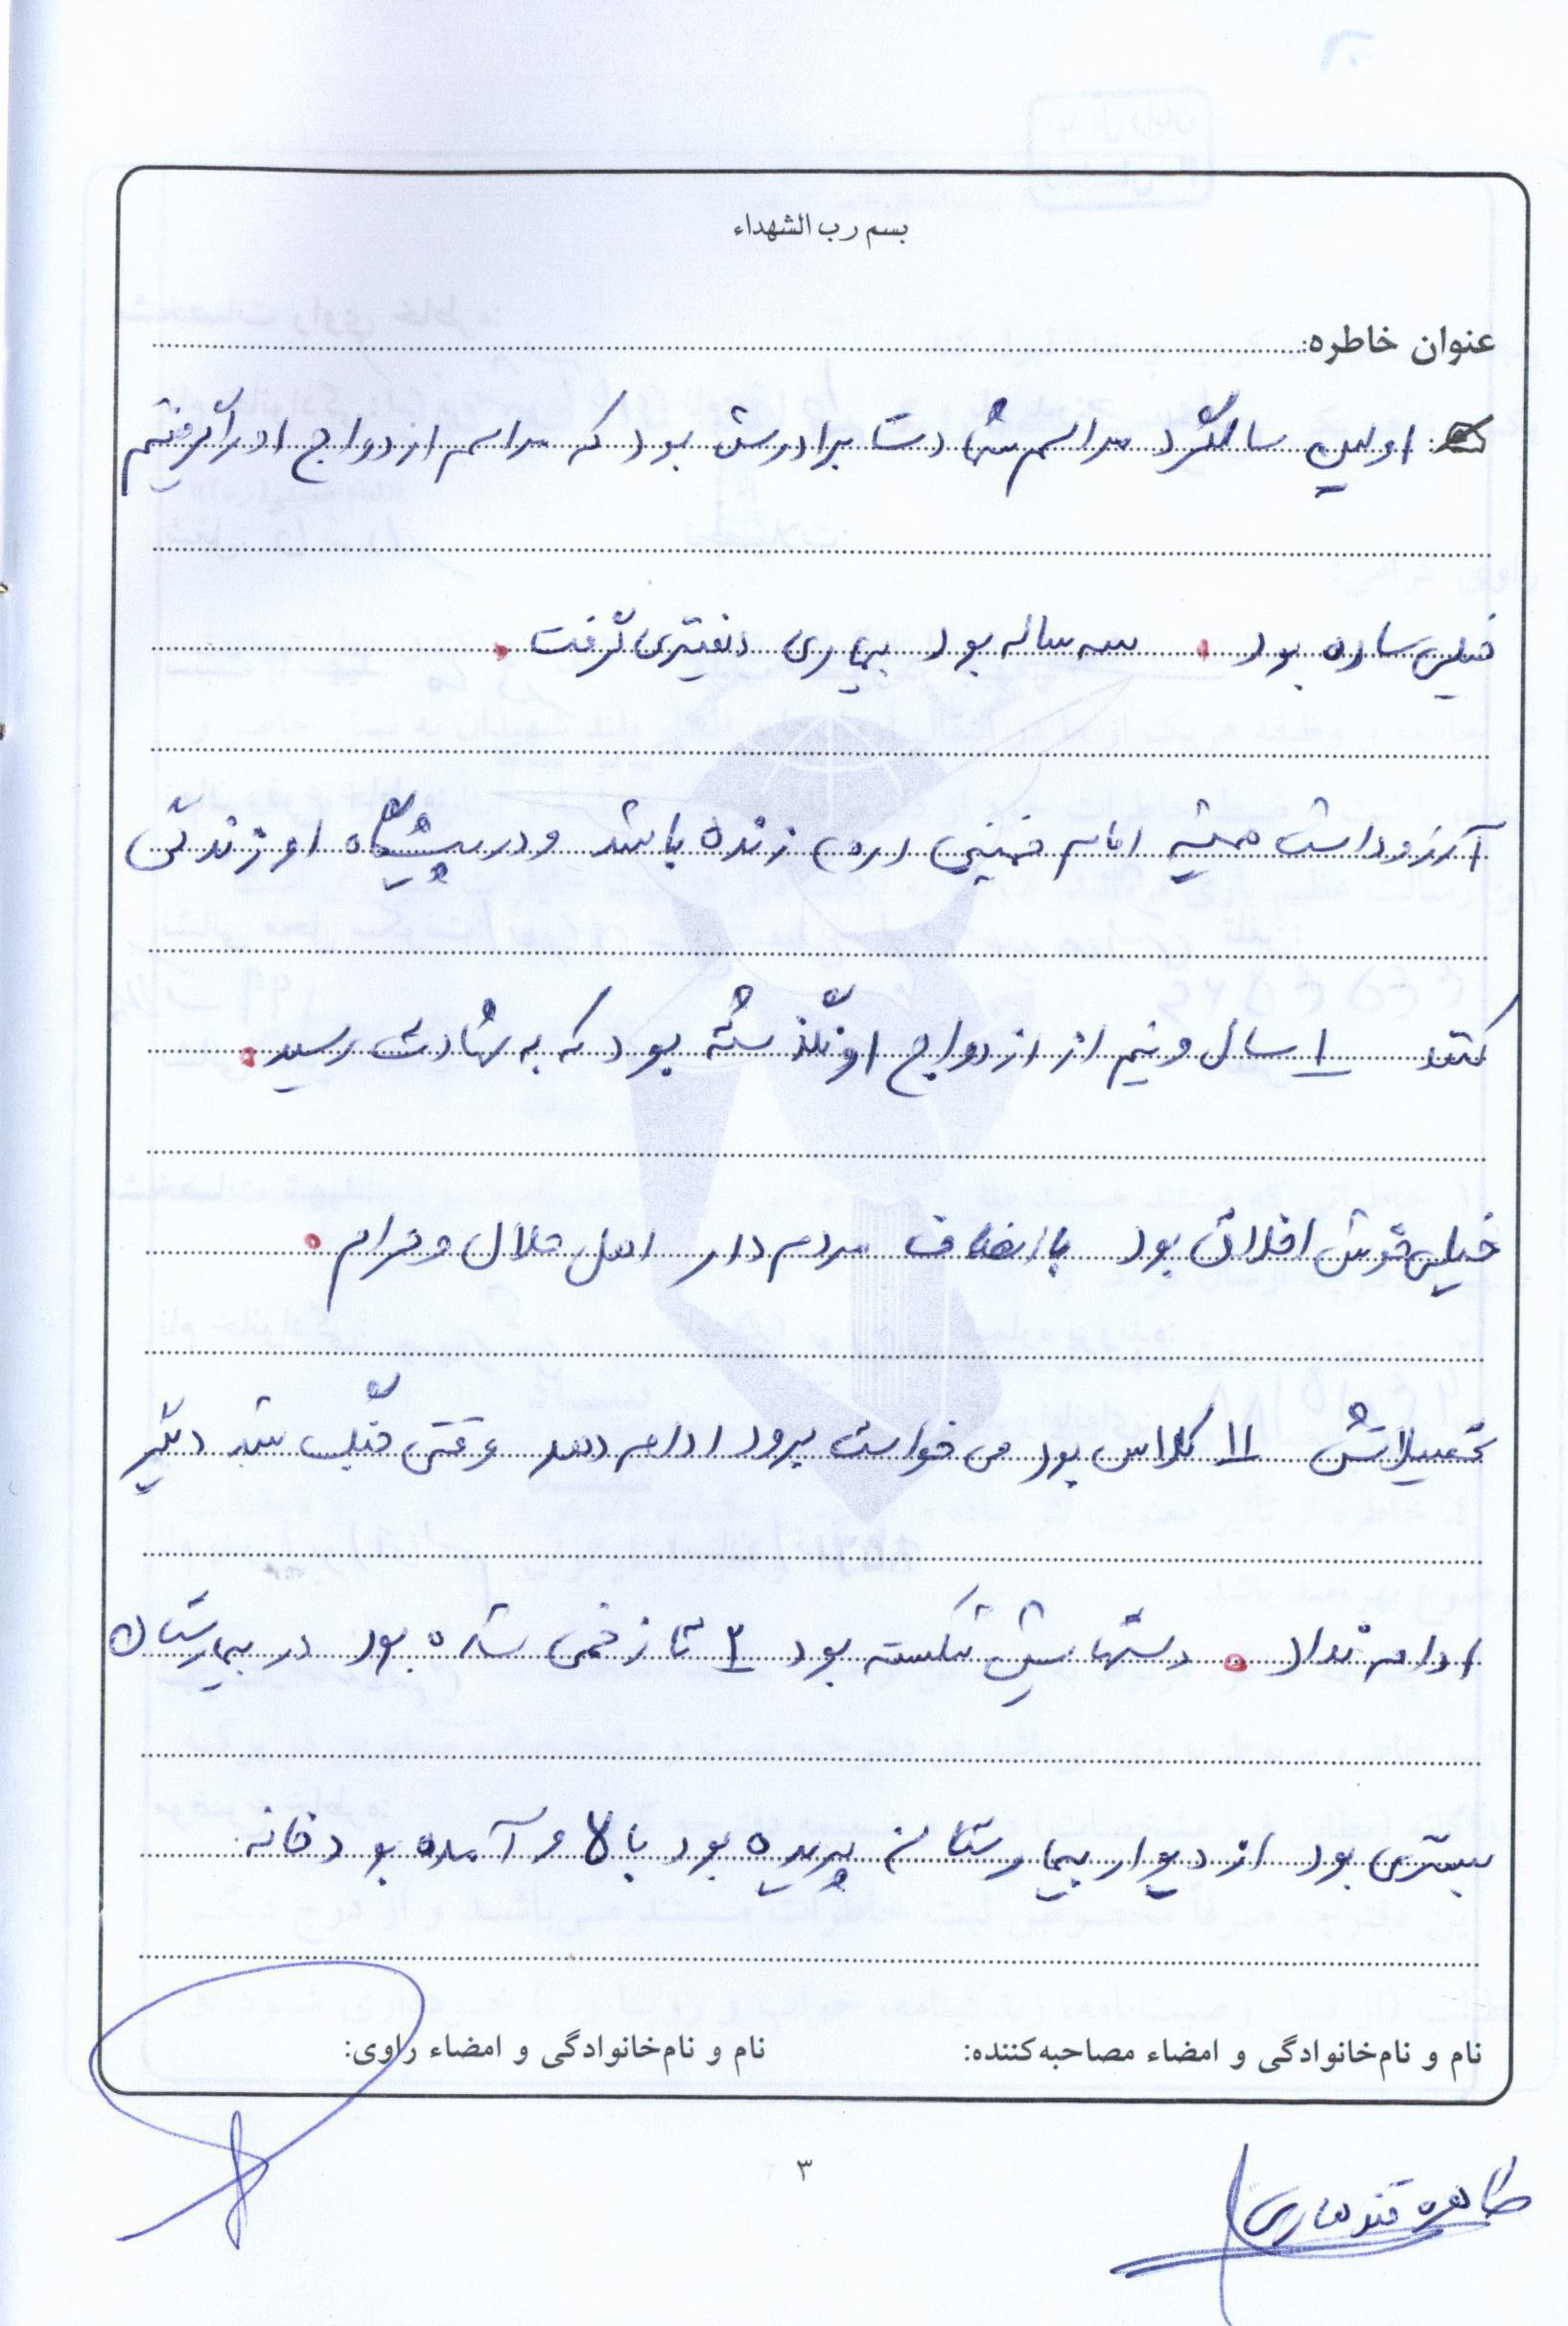 بسم رب الشهداء
عنوان خاطره:
اولین سالگرد مراسم شهادت برادرش بود که مراسم ازدواج او را گرفتیم
خیلی ساده بود . سه ساله بود بیماری دیفتری گرفت .
آرزو داشت همیشه امام خمینی (ره) زنده باشد و در پیشگاه او زندگی
کند ۱ سال و نیم از ازدواج او نگذشته بود که به شهادت رسید .
خیلی خوش اخلاق بود با انصاف مردم دار اهل حلال و حرام .
تحصیلاتش ۱۱ کلاس بود می خواست برود ادامه دهد وقتی جنگ شد دیگر
ادامه نداد . دستهایش شکسته بود ۳ تا زخمی شده بود در بیمارستان
بستری بود از دیوار بیمارستان پریده بود بالا و آمده بود خانه
نام و نام‌خانوادگی و امضاء مصاحبه‌کننده: نام و نام‌خانوادگی و امضاء راوی:
طاهره قندهاری
۳